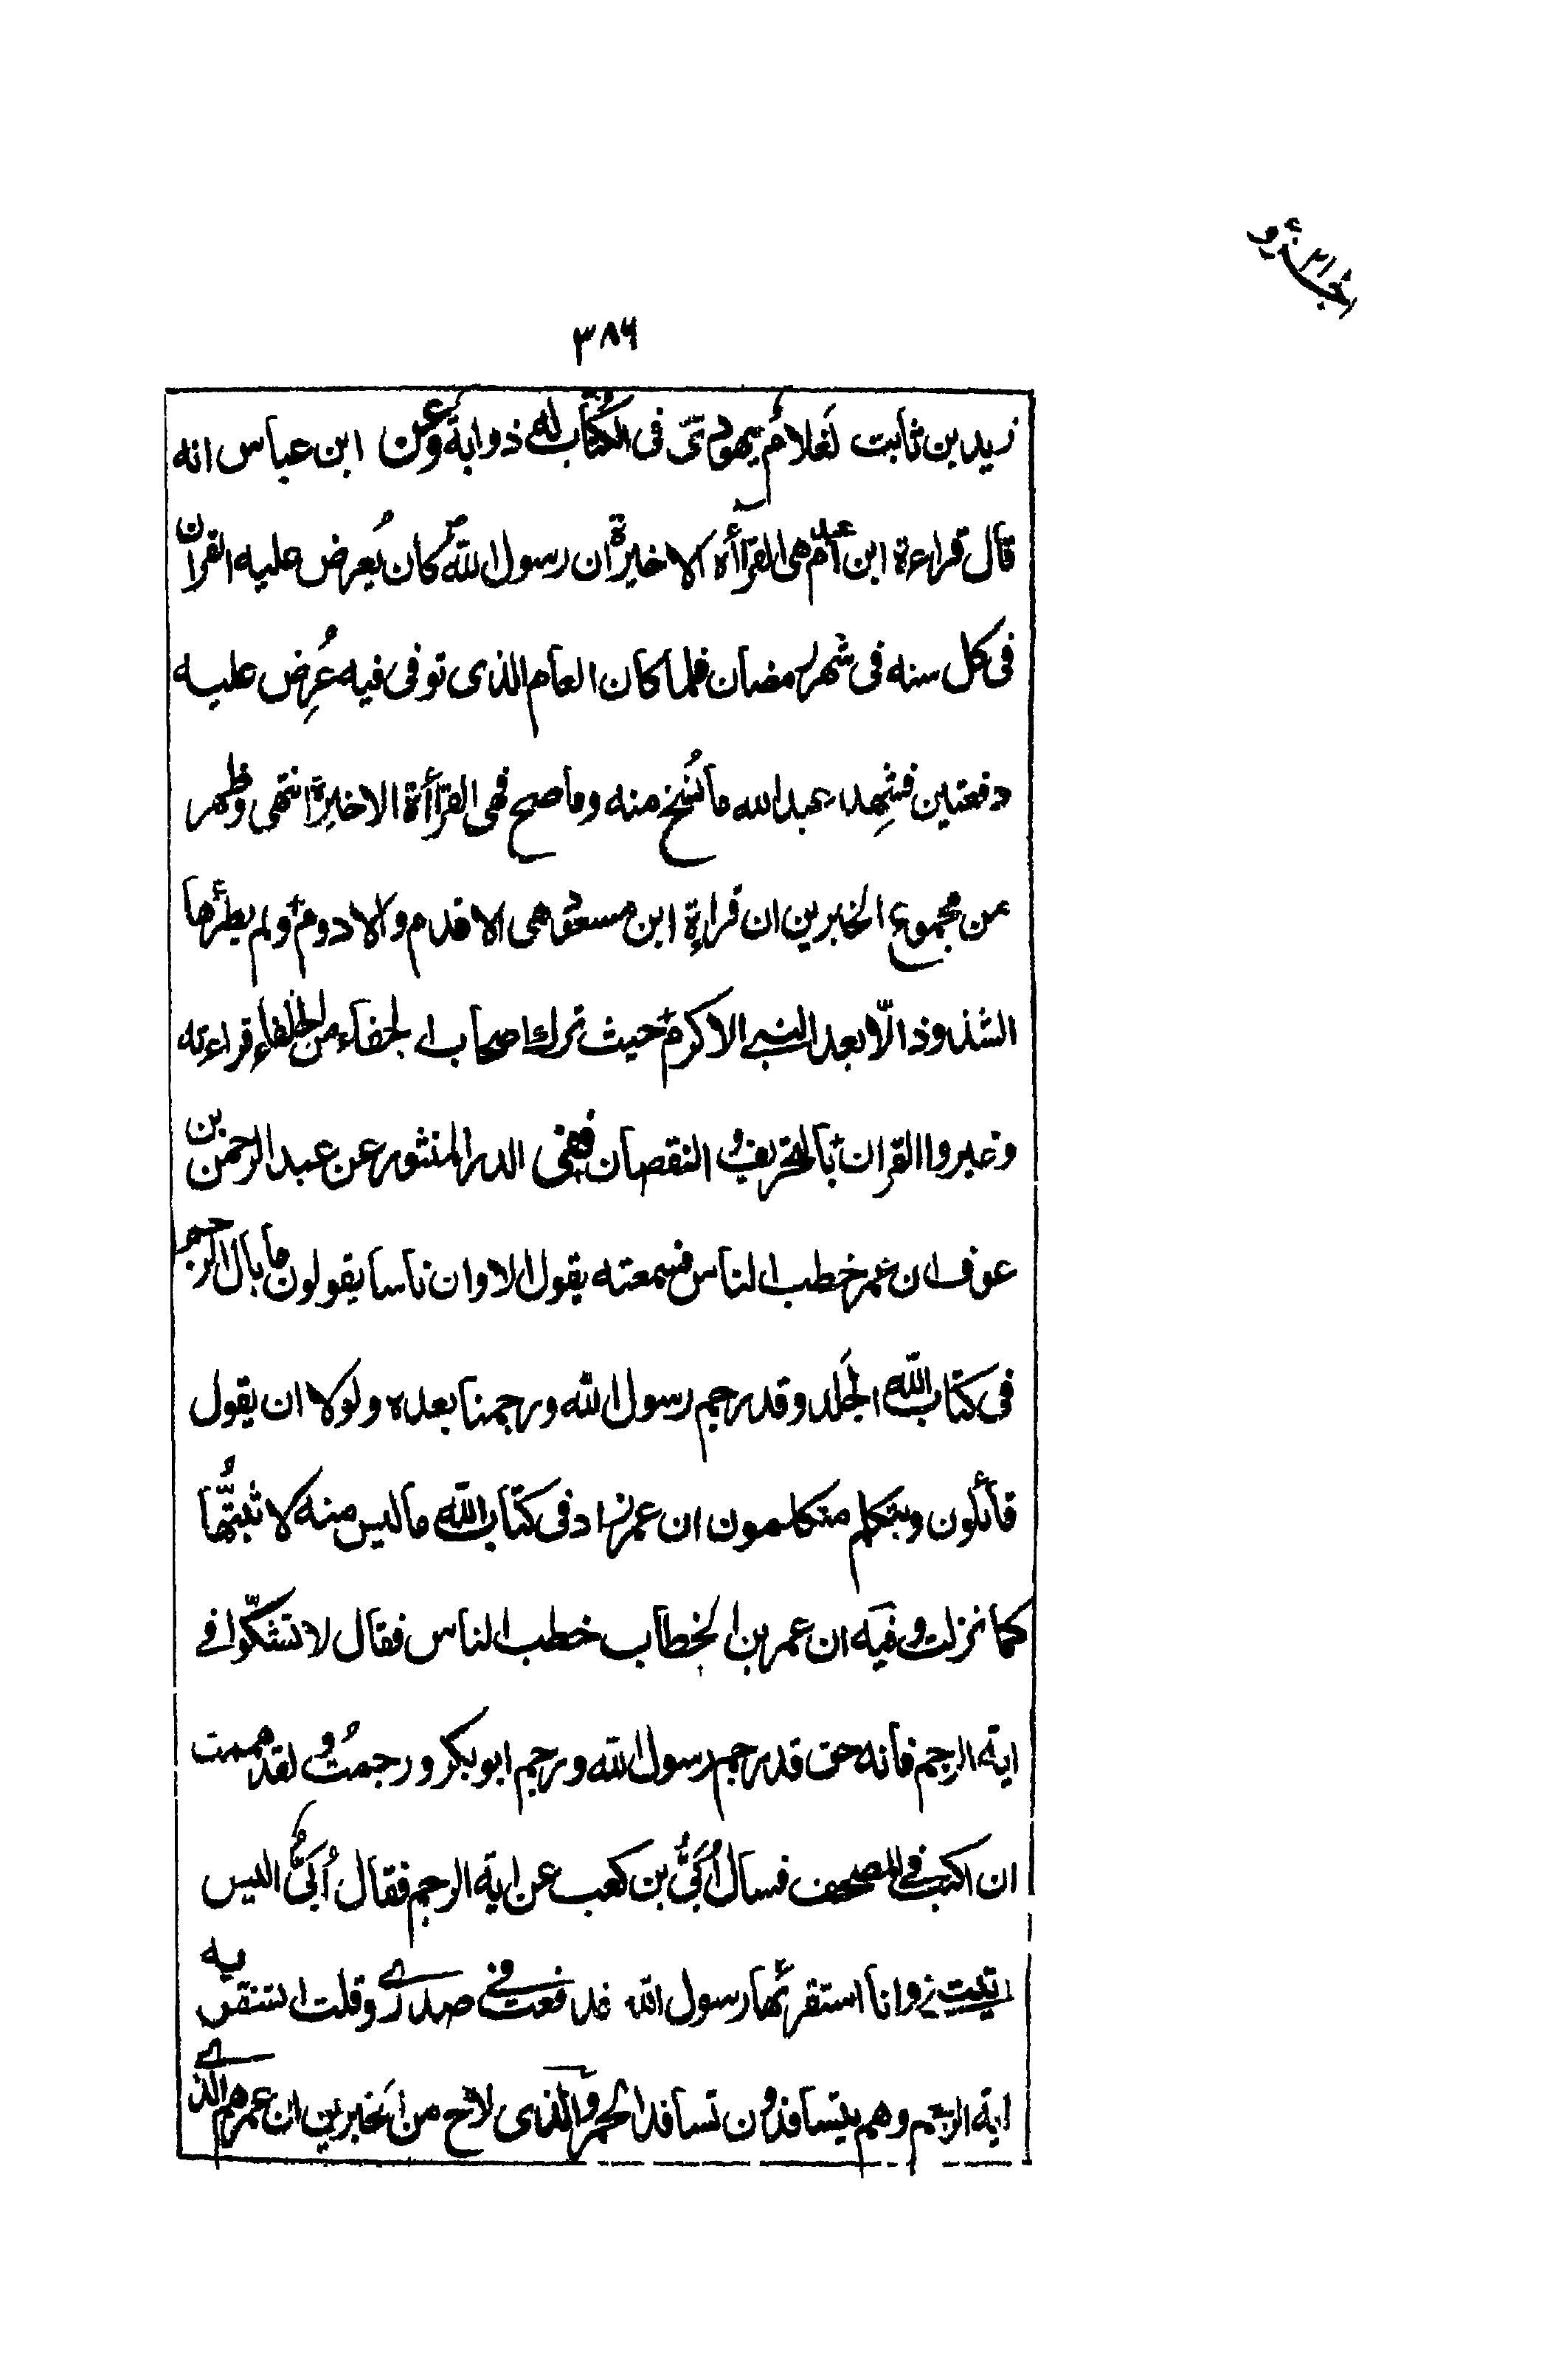 ٣٨٦
زيد بن ثابت لغلام يهودى فى الكتاب له ذوابة وعن ابن عباس انه
قال قراءة ابن ام عبد هى القراأة الاخيرة ان رسول الله ص كان يُعرض عليه القران
فى كل سنه فى شهر رمضان فلما كان العام الذى توفى فيه عُرِض عليه
دفعتين فشِهد عبد الله ما نُسخ منه وما صح فهى القراأة الاخيرة انتهى وظهر
من مجموع الخبرين ان قراءة ابن مسعود هى الاقدم والادوم ولم يطرأها
الشذوذ الّا بعد النبى الاكرم حيث ترك اصحاب الجفاء من الخلفاء قراءته
وغيروا القران بالتحريف و النقصان ففى الدر المنثور عن عبد الرحمن بن
عوف ان عمر خطب الناس فسمعته يقول الا وان ناسا يقولون ما بال الرجم
فى كتاب الله الجَلد وقد رجم رسول الله ورجمنا بعده ولولا ان يقول
قائلون ويتكلم متكلمون ان عمر زاد فى كتاب الله ما ليس منه لاثبتُّها
كما نزلت وفيه ان عمر بن الخطاب خطب الناس فقال لا تشكّوا فى
اية الرجم فانه حق قد رجم رسول الله ورجم ابو بكر ورجمتُ و لقد هممت
ان اكتب فى المصحف فسال اُبىَّ بن كعب عن اية الرجم فقال اُبىُّ اليس
اتيتنى وانا استقرئها رسول الله فدفعت فى صدرى وقلت استقريه
اية الرجم وهم يتسافدون تسافد الحمر والذى لاح من الخبرين ان عمر هم الذى